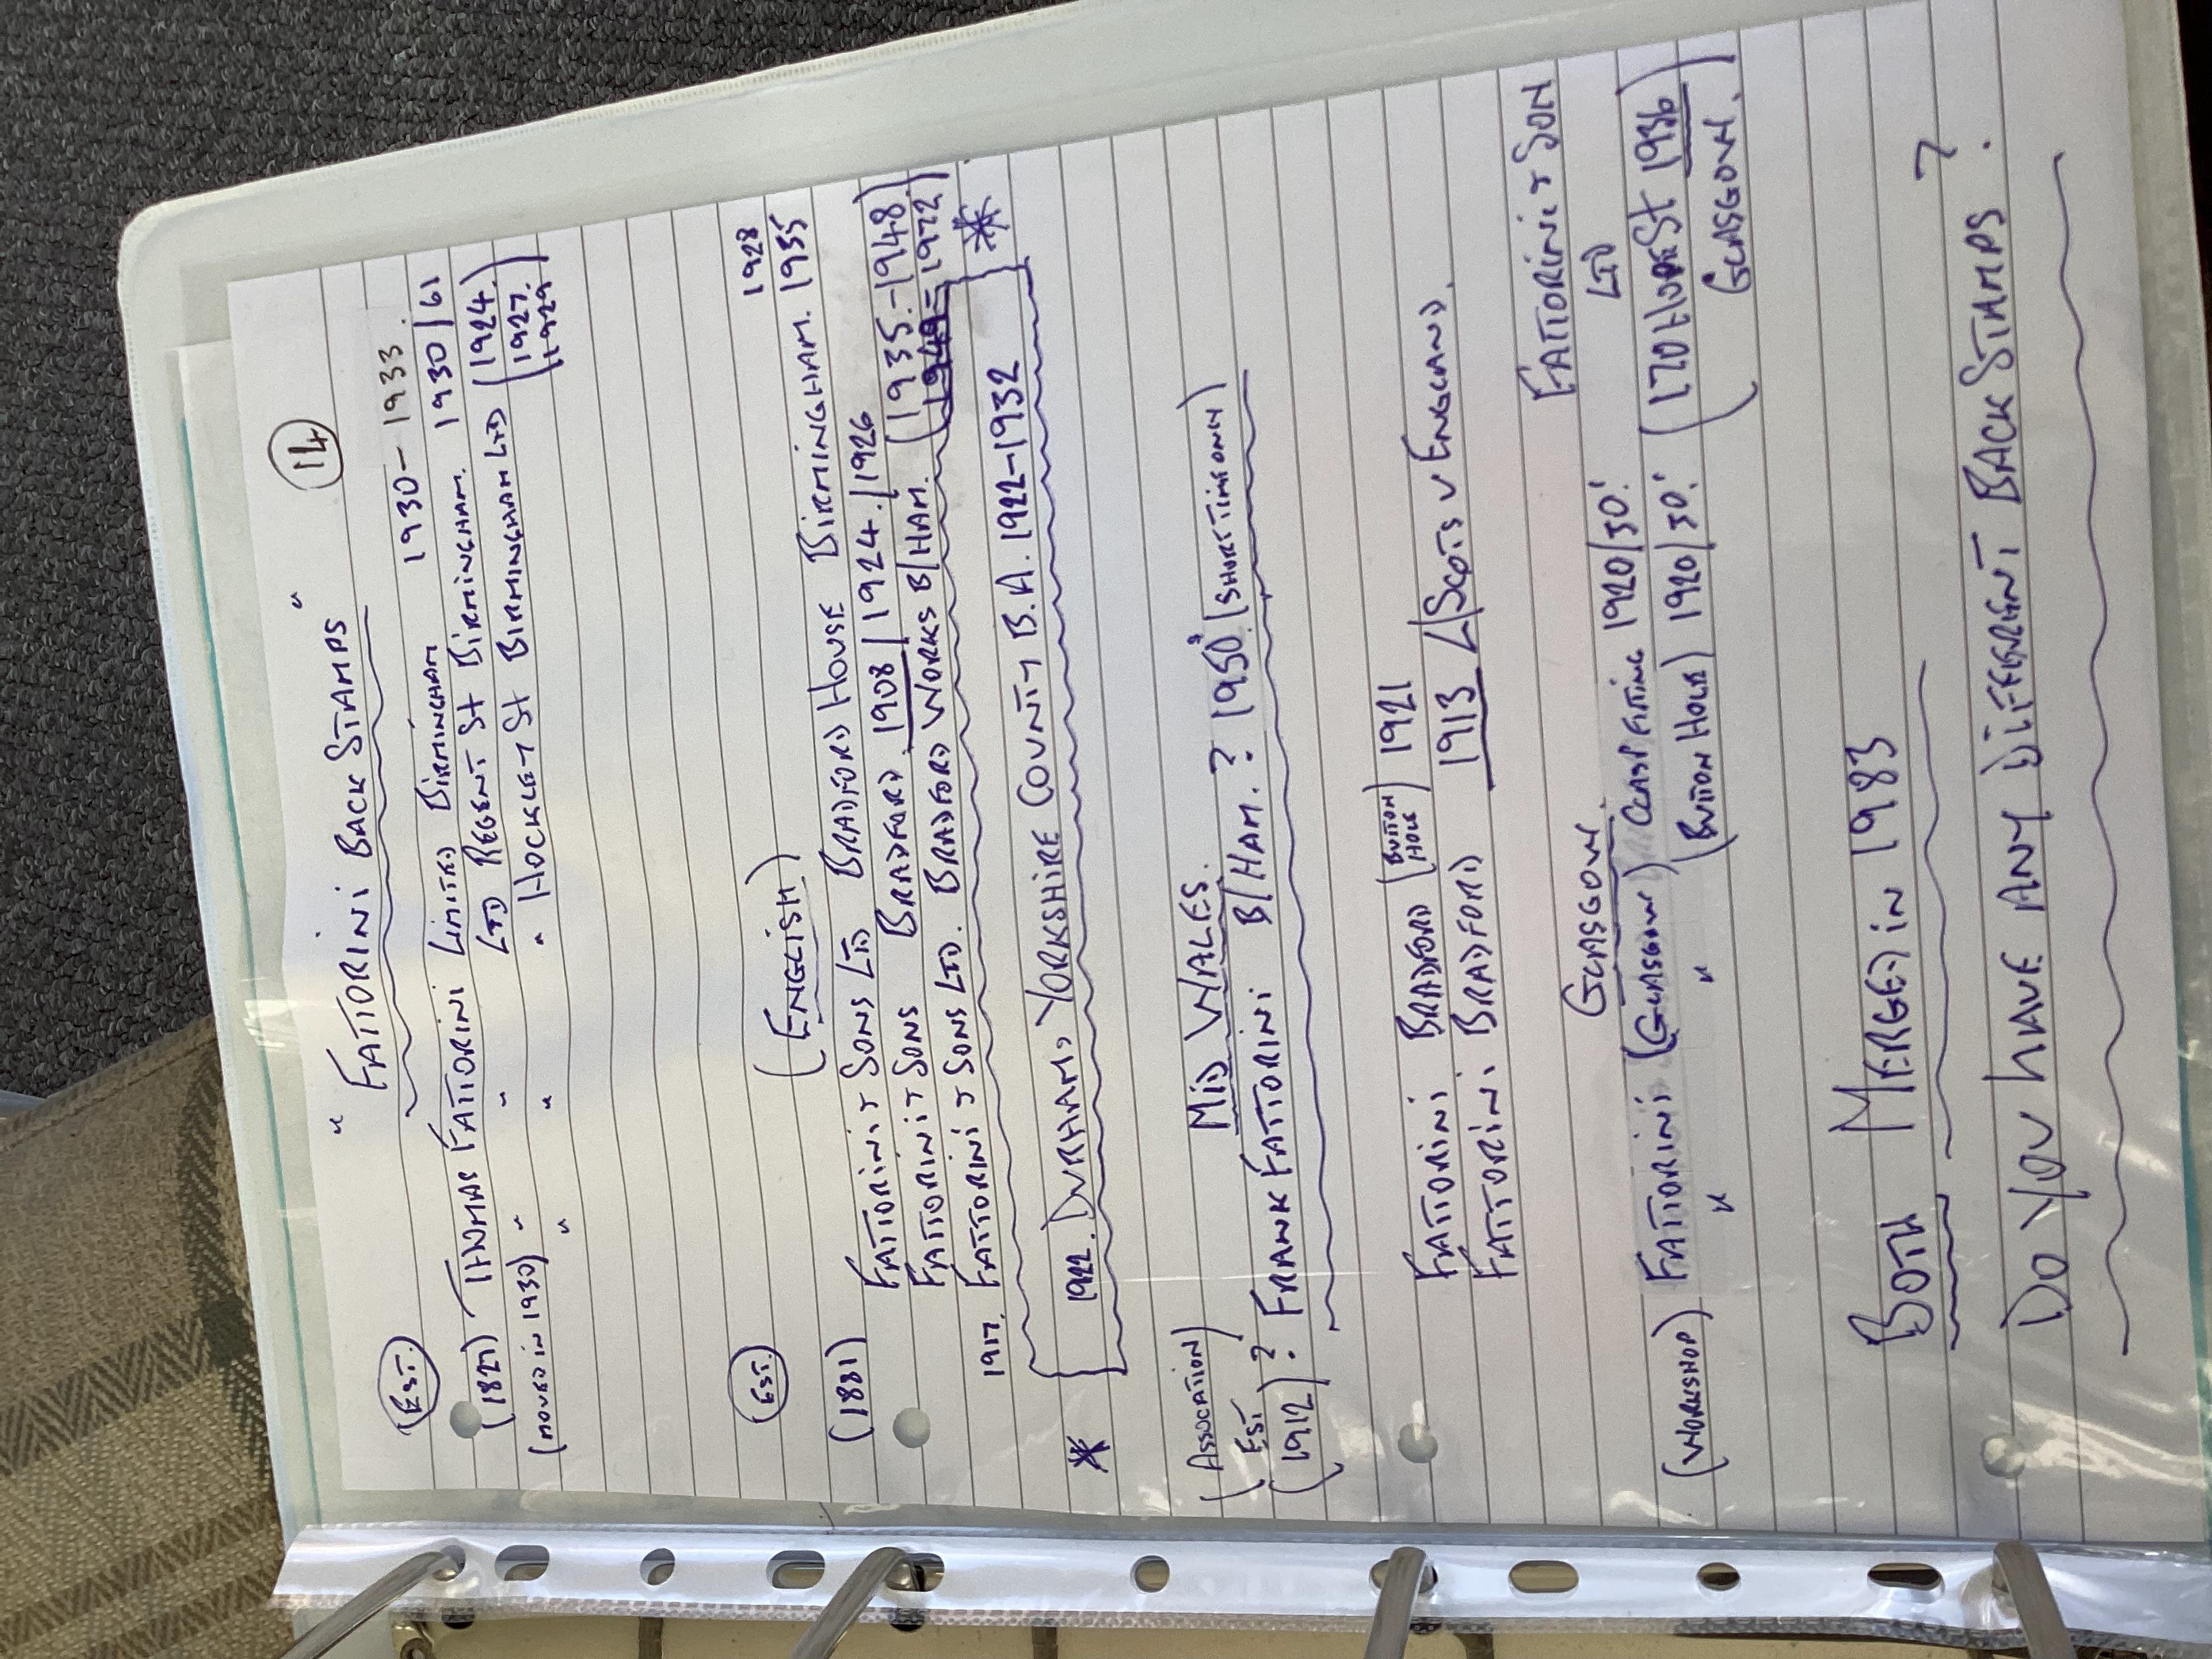 14
" FATTORINI BACK STAMPS "
EST.
1930 - 1933.
(1827) THOMAS FATTORINI LIMITED BIRMINGHAM 1930/61
(MOVED IN 1930) " " LTD REGENT ST BIRMINGHAM. (1924.)
" " " HOCKLEY ST BIRMINGHAM LTD (1927. 1929)
(ENGLISH)
EST. 1928
(1881) FATTORINI & SONS LTD BRADFORD HOUSE BIRMINGHAM. 1935
FATTORINI & SONS BRADFORD. 1908 / 1924. / 1926
1917. FATTORINI & SONS LTD. BRADFORD WORKS B/HAM. (1935.-1948)
(1949 = 1972)
* [1922. DURHAM, YORKSHIRE COUNTY B.A. 1922-1932] *
(ASSOCATION) MID WALES.
(EST 1912)? FRANK FATTORINI B/HAM.? 1950s (SHORT TIME ONLY)
FATTORINI BRADFORD (BUTTON HOLE) 1921
FATTORINI BRADFORD 1913 / SCOTS V ENGLAND.
GLASGOW. FATTORINI & SON LTD
(WORKSHOP) FATTORINI (GLASGOW) CLASP FITTING 1920/30' (170 HOPE ST 1936)
" " (BUTTON HOLE) 1920/30' GLASGOW.
BOTH MERGED IN 1983
DO YOU HAVE ANY DIFFERENT BACK STAMPS. ?